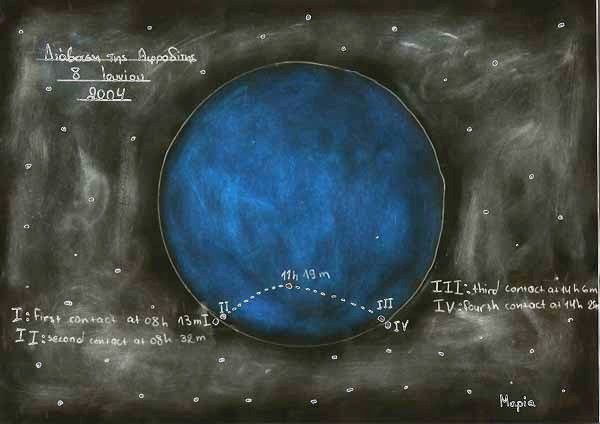 Διάβαση της Αφροδίτης
8 Ιουνίου
2004
11h 19m
II
III
I
IV
I: first contact at 08h 13m
II: second contact at 08h 32m
III: third contact at 14h 6m
IV: fourth contact at 14h
Μαρία